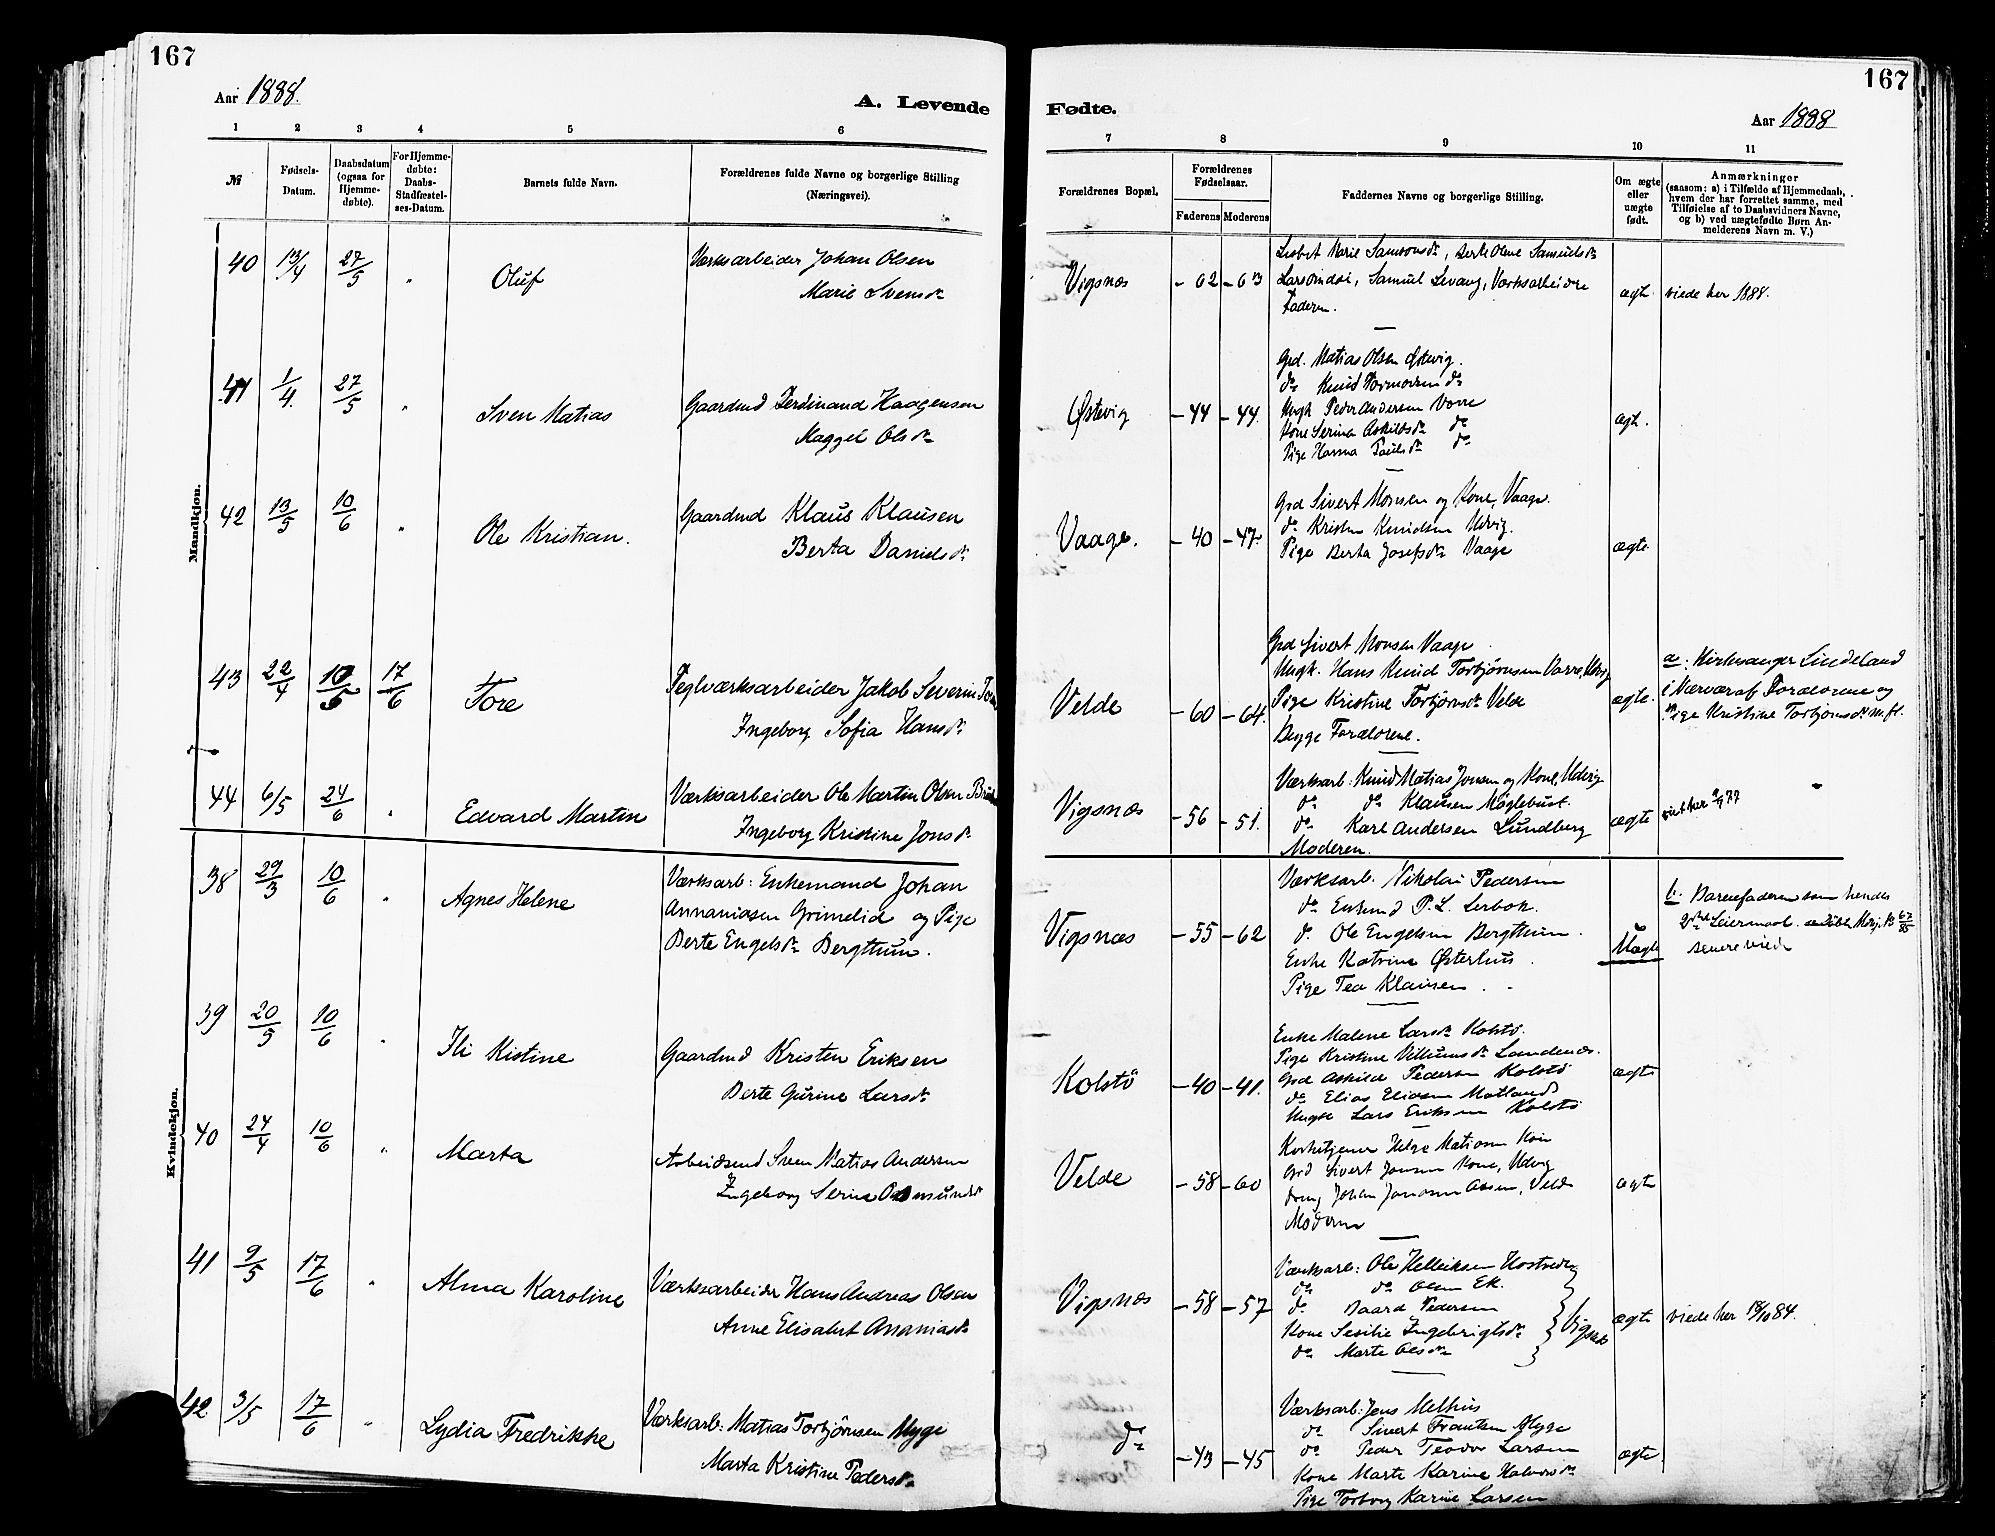 167
Aar 1888.
A. Levende
1 2 3 4 5 6
№
Fødsels-
Datum.
Daabsdatum
(ogsaa for
Hjemme-
døbte).
For Hjemme-
døbte:
Daabs-
Stadfæstel-
ses-Datum.
Barnets fulde Navn.
Forældrenes fulde Navne og borgerlige Stilling
(Næringsvei).
Mandkjøn.
40 13/4 27/5 " Oluf
Værksarbeider Johan Olsen
Marie Svensdr
41 1/4 27/5 " Sven Matias
Gaardmd Ferdinand Haagensen
Maggel Olsdr
42 13/5 10/6 " Ole Kristian.
Gaardmd Klaus Klausen
Berta Danielsdr
43 22/4 10/5 17/6 Tore
Teglværksarbeider Jakob Severin
Ingeborg Sofia Hansdr
44 6/5 24/6 " Edvard Martin
Værksarbeider Ole Martin Olsen
Ingeborg Kristine Jonsdr
Kvindekjøn.
38 29/3 10/6 " Agnes Helene
Værksarb: Enkemand Johan
Annaniasen Grimelid og Pige
Berte Engelsdr Bergthun.
39 20/5 10/6 " Ili Kistine
Gaardmd Kristen Eriksen
Berte Gurine Larsdr
40 24/4 10/6 " Marta
Arbeidsmd Sven Matias Andersen
Ingeborg Serine Osmundsdr
41 9/5 17/6 " Alma Karoline
Værksarbeider Hans Andreas Olsen
Anne Elisabet Ananiasdr
42 3/5 17/6 " Lydia Fredrikke
Værksarb: Matias Torbjørnsen Myge
Marta Kristine Pedersdr
167
Fødte.
Aar 1888
7 8 9 10 11
Forældrenes Bopæl.
Forældrenes
Fødselsaar.
Faderens Moderens
Faddernes Navne og borgerlige Stilling.
Om ægte
eller
uægte
født.
Anmærkninger
(saasom: a) i Tilfælde af Hjemmedaab,
hvem der har forrettet samme, med
Tilføielse af to Daabsvidners Navne,
og b) ved uægtefødte Børn An-
melderens Navn m. V.)
Vigsnæs - 62 - 63
Lisbet Marie Samsonsdr, Berte Oline Samuelsdr
Samuel Levang, Værksarbeidere
Faderen.
ægte viede her 1888.
Østevig - 44 - 44.
Grd. Matias Olsen Østevig.
do Knud Tormodsen do
Ungk Peder Andersen Vorre
Kone Serina Askildsdr do
Pige Hanna Paulsdr do
ægt.
Vaage. - 40 - 47.
Grd Sivert Monsen og Kone, Vaage.
do Kristen Knudsen Udvig.
Pige Berta Josefsdr Vaage
ægte
Velde - 60 - 64.
Grd Sivert Monsen Vaage
Ungk. Hans Knud Torbjørnsen Vorre, Udvig
Pige Kristine Torbjørnsdr Velde
Begge Forældrene.
ægte.
a: Kirkesanger Lindeland
i Nærvær af Forældrene og
Pige Kristine Torbjørnsdr m.fl.
Vigsnæs - 56 - 51.
Værksarb: Knud Matias Jonsen og Kone, Udvig
do do Klausen Møglebust.
do Karl Andersen Lundberg
Moderen.
ægte
Vigsnæs - 55 - 62
Værksarb. Nikolai Pedersen
do Enkemd P. L.
do Ole Engelsen Bergthun.
Enke Katrine Østerhus.
Pige Tea Klausen.
Uægte
b. Barnefaderen som hendes
2det Leiermaal.
senere viede
Kolstö - 40 - 41.
Enke Malene Larsdr Kolstö.
Pige Kristine Villumsdr Sandenæs.
Grd Askild Pedersen Kolstö
do Elias Eliasen Matland
Ungk Lars Eriksen Kolstö
ægte
Velde - 58 - 60
Kirketjener Helge Matiasen
Grd Sivert Jonsen Kone, Udvig
Dreng Johan Velde
Moderen
ægte
Vigsnæs - 58 - 57
Værksarb: Ole Helleiksen
do do Olsen Ek.
do Baard Pedersen
Kone Sesilie Ingebrigtsdr
do Marte Olsdr
Vigsnæs
ægte viede her 18/10 84.
do - 43 - 45
Værksarb: Jens Melhus
do Sivert Frantsen Myge
do Peder Teodor Larsen
Kone Marte Karine Halvorsdr
Pige Torborg Karine Larsen
ægte